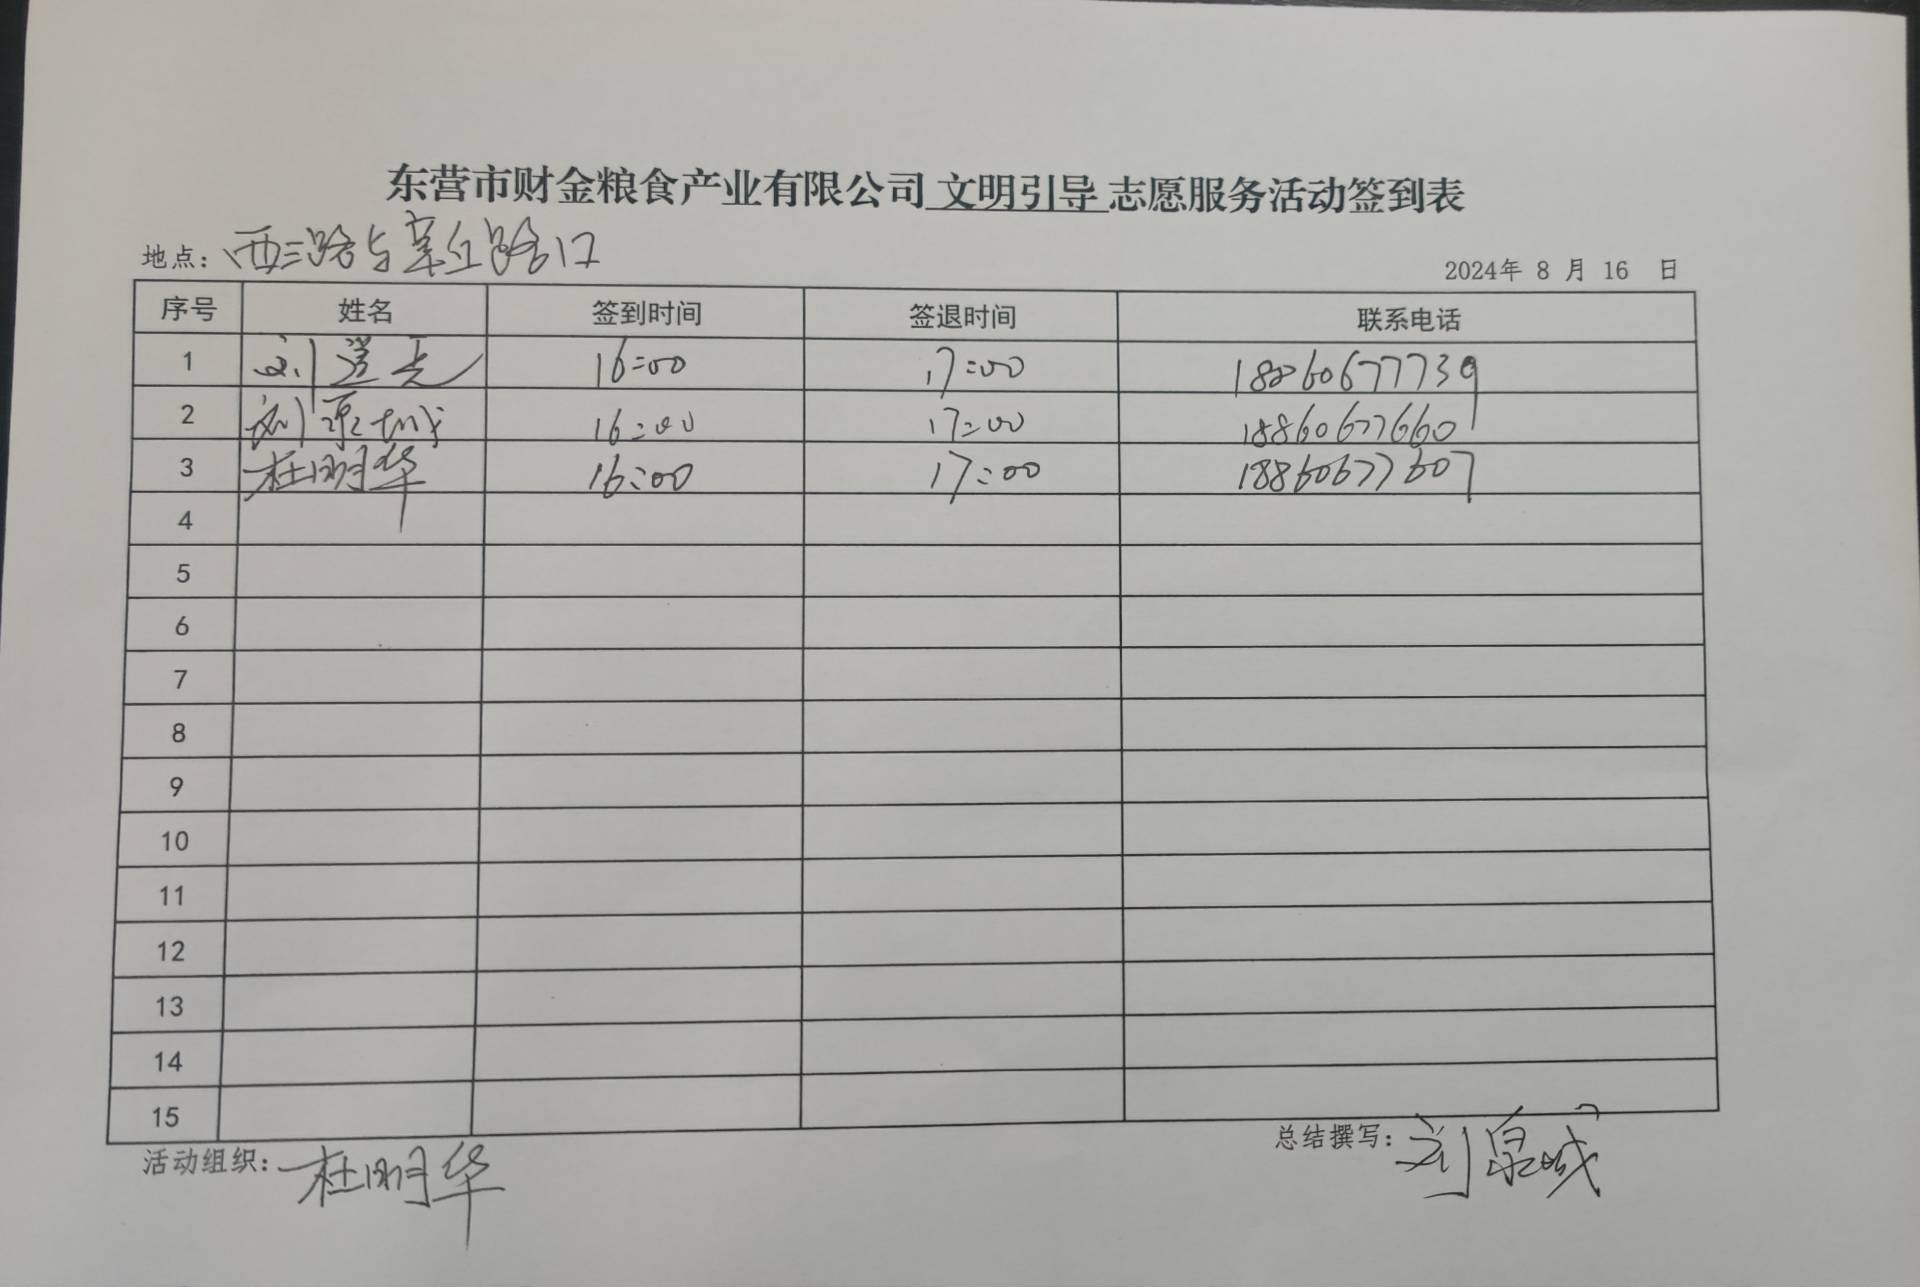 东营市财金粮食产业有限公司 文明引导 志愿服务活动签到表
地点：西三路与 路口
2024年 8 月 16 日
序号 姓名 签到时间 签退时间 联系电话
1 刘 16:00 17:00 18860677739
2 刘泉城 16:00 17:00 18860677660
3 杜明华 16:00 17:00 18860677607
4
5
6
7
8
9
10
11
12
13
14
15
活动组织：杜明华
总结撰写：刘泉城